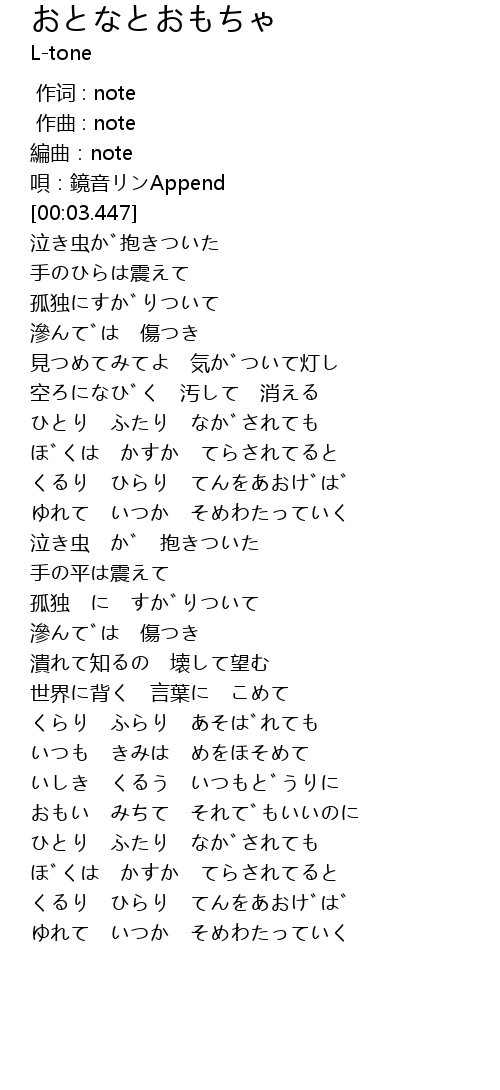 おとなとおもちゃ
L-tone
作词 : note
作曲 : note
編曲：note
唄：鏡音リンAppend
[00:03.447]
泣き虫が抱きついた
手のひらは震えて
孤独にすがりついて
滲んでは　傷つき
見つめてみてよ　気がついて灯し
空ろになびく　汚して　消える
ひとり　ふたり　ながされても
ぼくは　かすか　てらされてると
くるり　ひらり　てんをあおげば
ゆれて　いつか　そめわたっていく
泣き虫　が　抱きついた
手の平は震えて
孤独　に　すがりついて
滲んでは　傷つき
潰れて知るの　壊して望む
世界に背く　言葉に　こめて
くらり　ふらり　あそばれても
いつも　きみは　めをほそめて
いしき　くるう　いつもどうりに
おもい　みちて　それでもいいのに
ひとり　ふたり　ながされても
ぼくは　かすか　てらされてると
くるり　ひらり　てんをあおげば
ゆれて　いつか　そめわたっていく